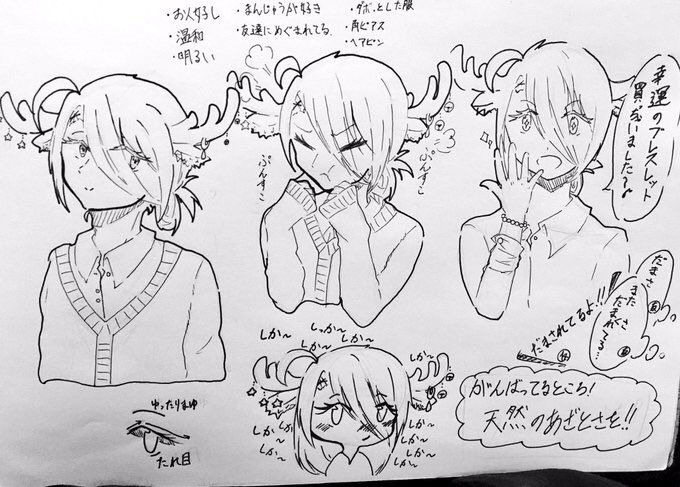 ・お人好し
・温和
・明るい
・まんじゅうが好き
・友達にめぐまれてる
・ダボっとした服
・角ピアス
・ヘアピン
ぷんすこ
ぷんすこ
幸運のブレスレット
買っちゃいました?♪
だまさ
また
だまされてるよ!!
しか〜
しっか〜
しか〜
しか〜
しか〜
しか〜
しか〜
しか〜
しか〜
しか〜
しか〜
しか〜
ゆったりまゆ
たれ目
がんばってるところ!
天然のあざとさを!!